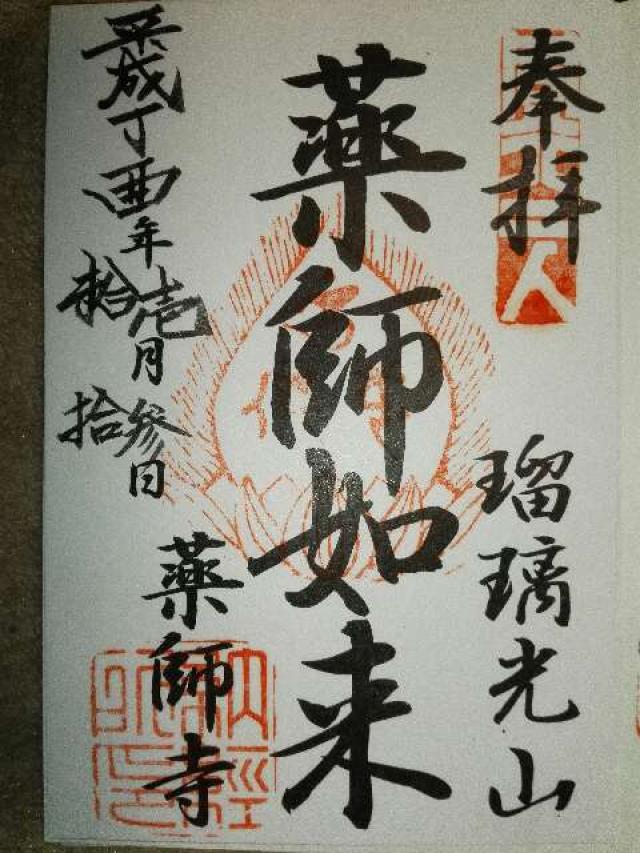 奉拝
瑠璃光山
薬師如来
平成丁酉年
拾壱月
拾参日
薬師寺